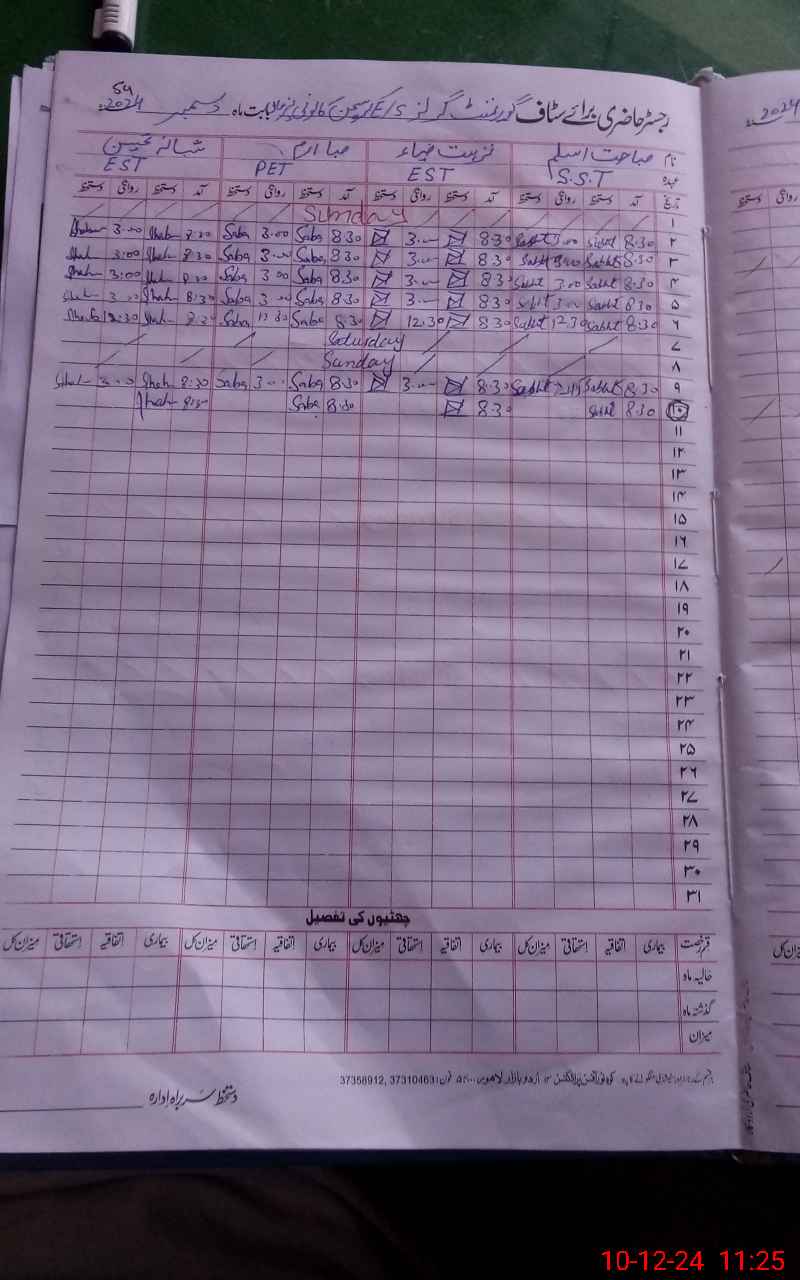 رجسٹر حاضری برائے سٹاف گورنمنٹ گرلز E/S کالونی بابت ماہ دسمبر 2024
نام صباحت اسلم نزہت ضیاء صبا ارم شبانہ
عہدہ S.S.T EST PET EST
تاریخ آمد دستخط روانگی دستخط آمد دستخط روانگی دستخط آمد دستخط روانگی دستخط آمد دستخط روانگی دستخط
۱ Sunday
۲ 8.30 Sabht 3.00 Sabht 8.30 3.00 8.30 Saba 3.00 Saba 8.30 Shah 3.00
۳ 8.30 Sabht 3.00 Sabht 8.30 3.00 8.30 Saba 3.00 Saba 8.30 Shah 3:00 Shah
۴ 8.30 Sabht 3.00 Sabht 8.3 3.00 8.30 Saba 3.00 Saba 8.30 Shah 3:00 Shah
۵ 8.30 Sabht 3.00 Sabht 8.30 3.00 8.30 Saba 3.00 Saba 8.30 Shah 3.00 Shah
۶ 8.30 Sabht 12.30 Sabht 8.30 12.30 8.30 Saba 12.30 Saba 8.30 Shah 12.30
۷ Saturday
۸ Sunday
۹ 8.30 Sabht Sabht 8.30 3.00 8.30 Saba 3.00 Saba 8.30 Shah 3.00 Shah
۱۰ 8.30 Sabht 8.30 8.30 Saba 8.30 Shah
۱۱
۱۲
۱۳
۱۴
۱۵
۱۶
۱۷
۱۸
۱۹
۲۰
۲۱
۲۲
۲۳
۲۴
۲۵
۲۶
۲۷
۲۸
۲۹
۳۰
۳۱
چھٹیوں کی تفصیل
قسم رخصت بیماری اتفاقیہ استحقاقی میزان کل بیماری اتفاقیہ استحقاقی میزان کل بیماری اتفاقیہ استحقاقی میزان کل بیماری اتفاقیہ استحقاقی میزان کل
حالیہ ماہ
گذشتہ ماہ
میزان
اردو بازار لاہور فون: 37310463, 37358912
دستخط سربراہ ادارہ
10-12-24 11:25